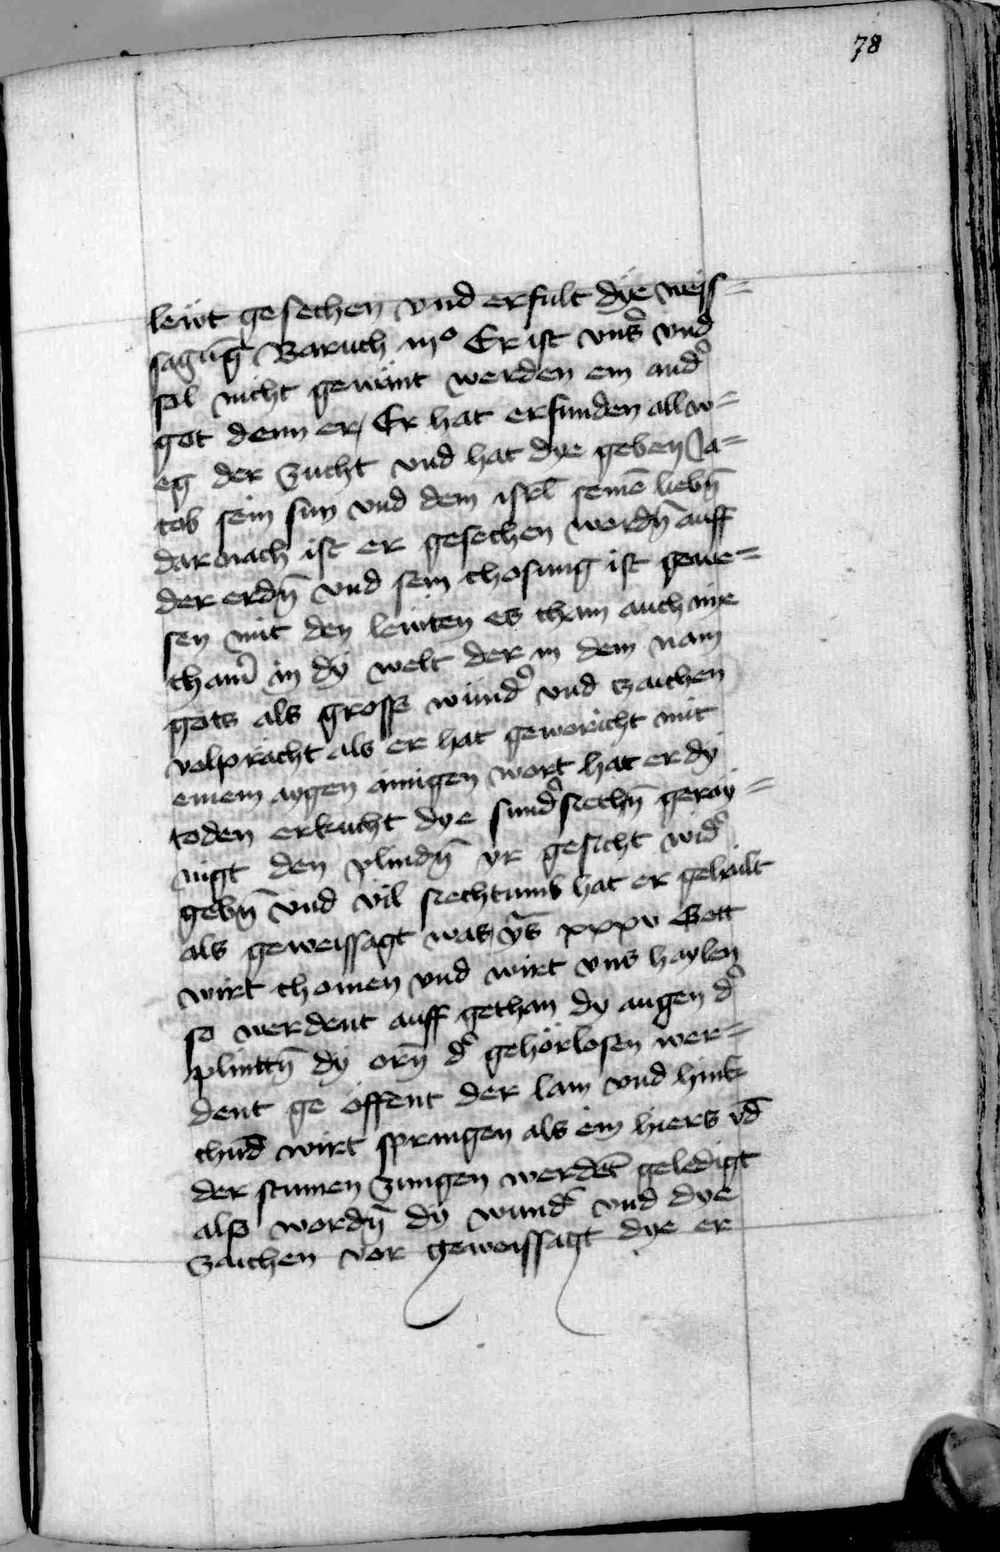 78
lewt gesechen vnd erfult dye weis=
sagūg Baruch iijo Er ist vnsʾ vnd
sol nicht gewänt werden ein andʾ
got denn er / Er hat erfunden all w=
eg der zucht vnd hat dye geben Ja=
cob sein sun vnd dem isrl̄ seinē liebn̄
dar nach ist er gesechen wordn̄ auff
der erdn̄ vnd sein chosung ist gewe=
sen mit den lewten es cham auch nye
chainʾ in dy welt der in dem nam
gots als grosse wundʾ vnd zaichen
volpracht als er hat geworicht mit
einem aygen ainigen wort hat er dy
toden erkucht dye sundʾsiechn̄ geray=
nigt den plindn̄ yr gesicht widʾ
gebn̄ vnd vil siechtums hat er gehailt
als geweissagt was ys̄ xxxv Gott
wirt chomen vnd wirt vns haylen
so werdent auff gethan dy augen dʾ
plintn̄ dy orn̄ dʾ gehörlosen wer=
dent ge öffent der lam vnd hink
chūd wirt springen als ein hiers vd̄
der stumen zungen werdēt geledigt
also wordn̄ dy wundʾ vnd dye
zaichen vor geweissagt dye er